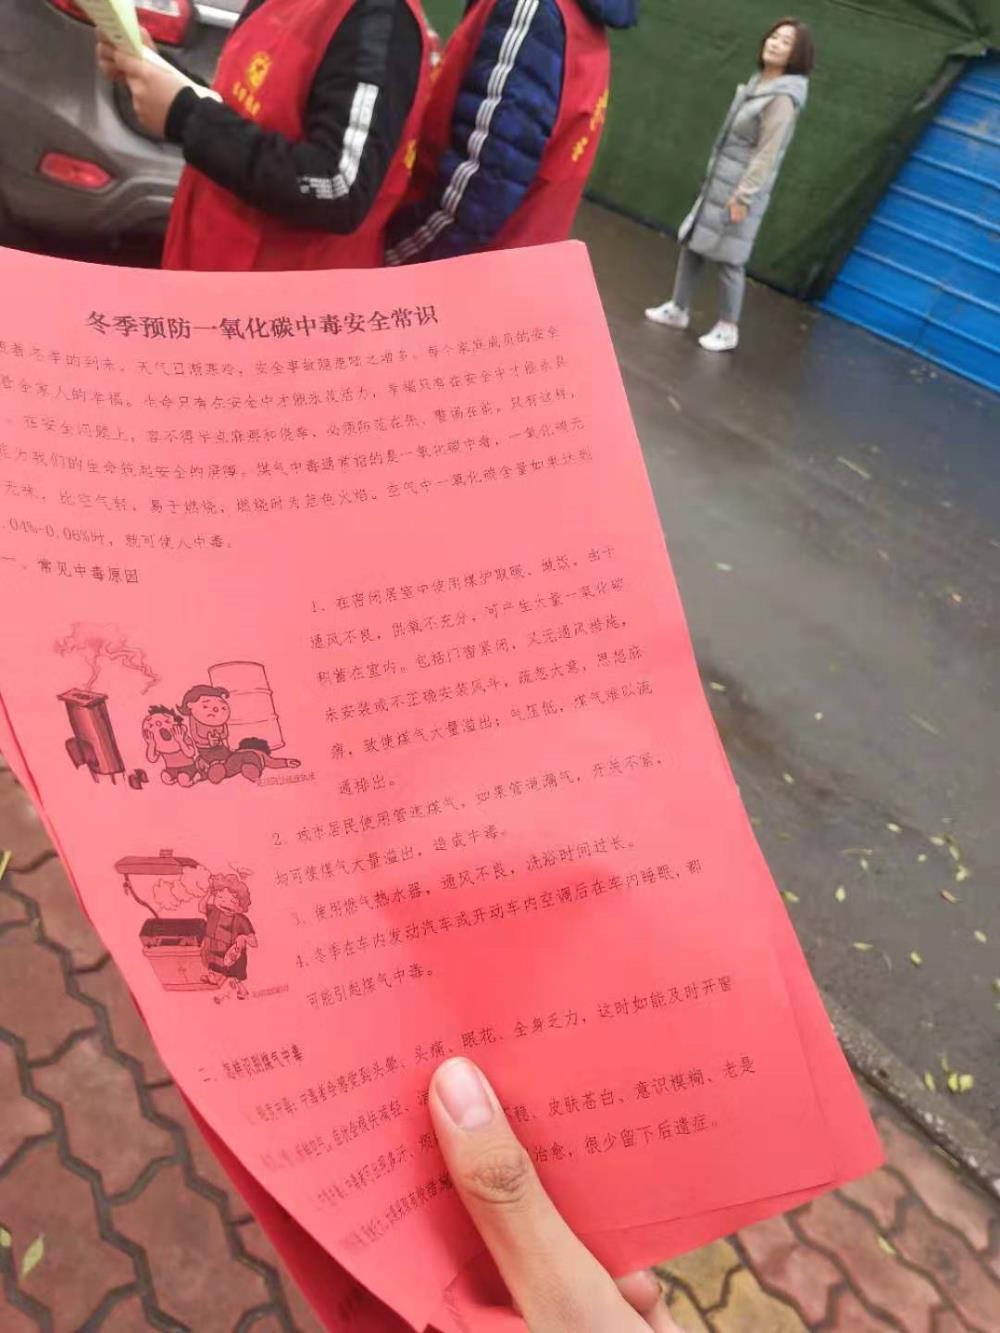 冬季预防一氧化碳中毒安全常识
着冬季的到来，天气日渐寒冷，安全事故隐患随之增多。每个家庭成员的安全
着全家人的幸福。生命只有在安全中才能永葆活力，幸福只有在安全中才能永具
。在安全问题上，容不得半点麻痹和侥幸，必须防范在先、警惕在前。只有这样，
能为我们的生命筑起安全的屏障。煤气中毒通常指的是一氧化碳中毒，一氧化碳无
无味，比空气轻，易于燃烧，燃烧时为蓝色火焰。空气中一氧化碳含量如果达到
.04%-0.06%时，就可使人中毒。
一、常见中毒原因
1、在密闭居室中使用煤炉取暖、做饭，由于
通风不良，供氧不充分，可产生大量一氧化碳
积蓄在室内。包括门窗紧闭，又无通风措施，
未安装或不正确安装风斗，疏忽大意，思想麻
痹，致使煤气大量溢出；气压低，煤气难以流
通排出。
2、城市居民使用管道煤气，如果管道漏气，开关不紧，
均可使煤气大量溢出，造成中毒。
3、使用燃气热水器，通风不良，洗浴时间过长。
4、冬季在车内发动汽车或开动车内空调后在车内睡眠，都
可能引起煤气中毒。
二、怎样识别煤气中毒
1、轻度中毒：中毒者会感觉到头晕、头痛、眼花、全身乏力，这时如能及时开窗
症状会很快减轻、
多汗、烦 不稳、皮肤苍白、意识模糊、老是
治愈，很少留下后遗症。